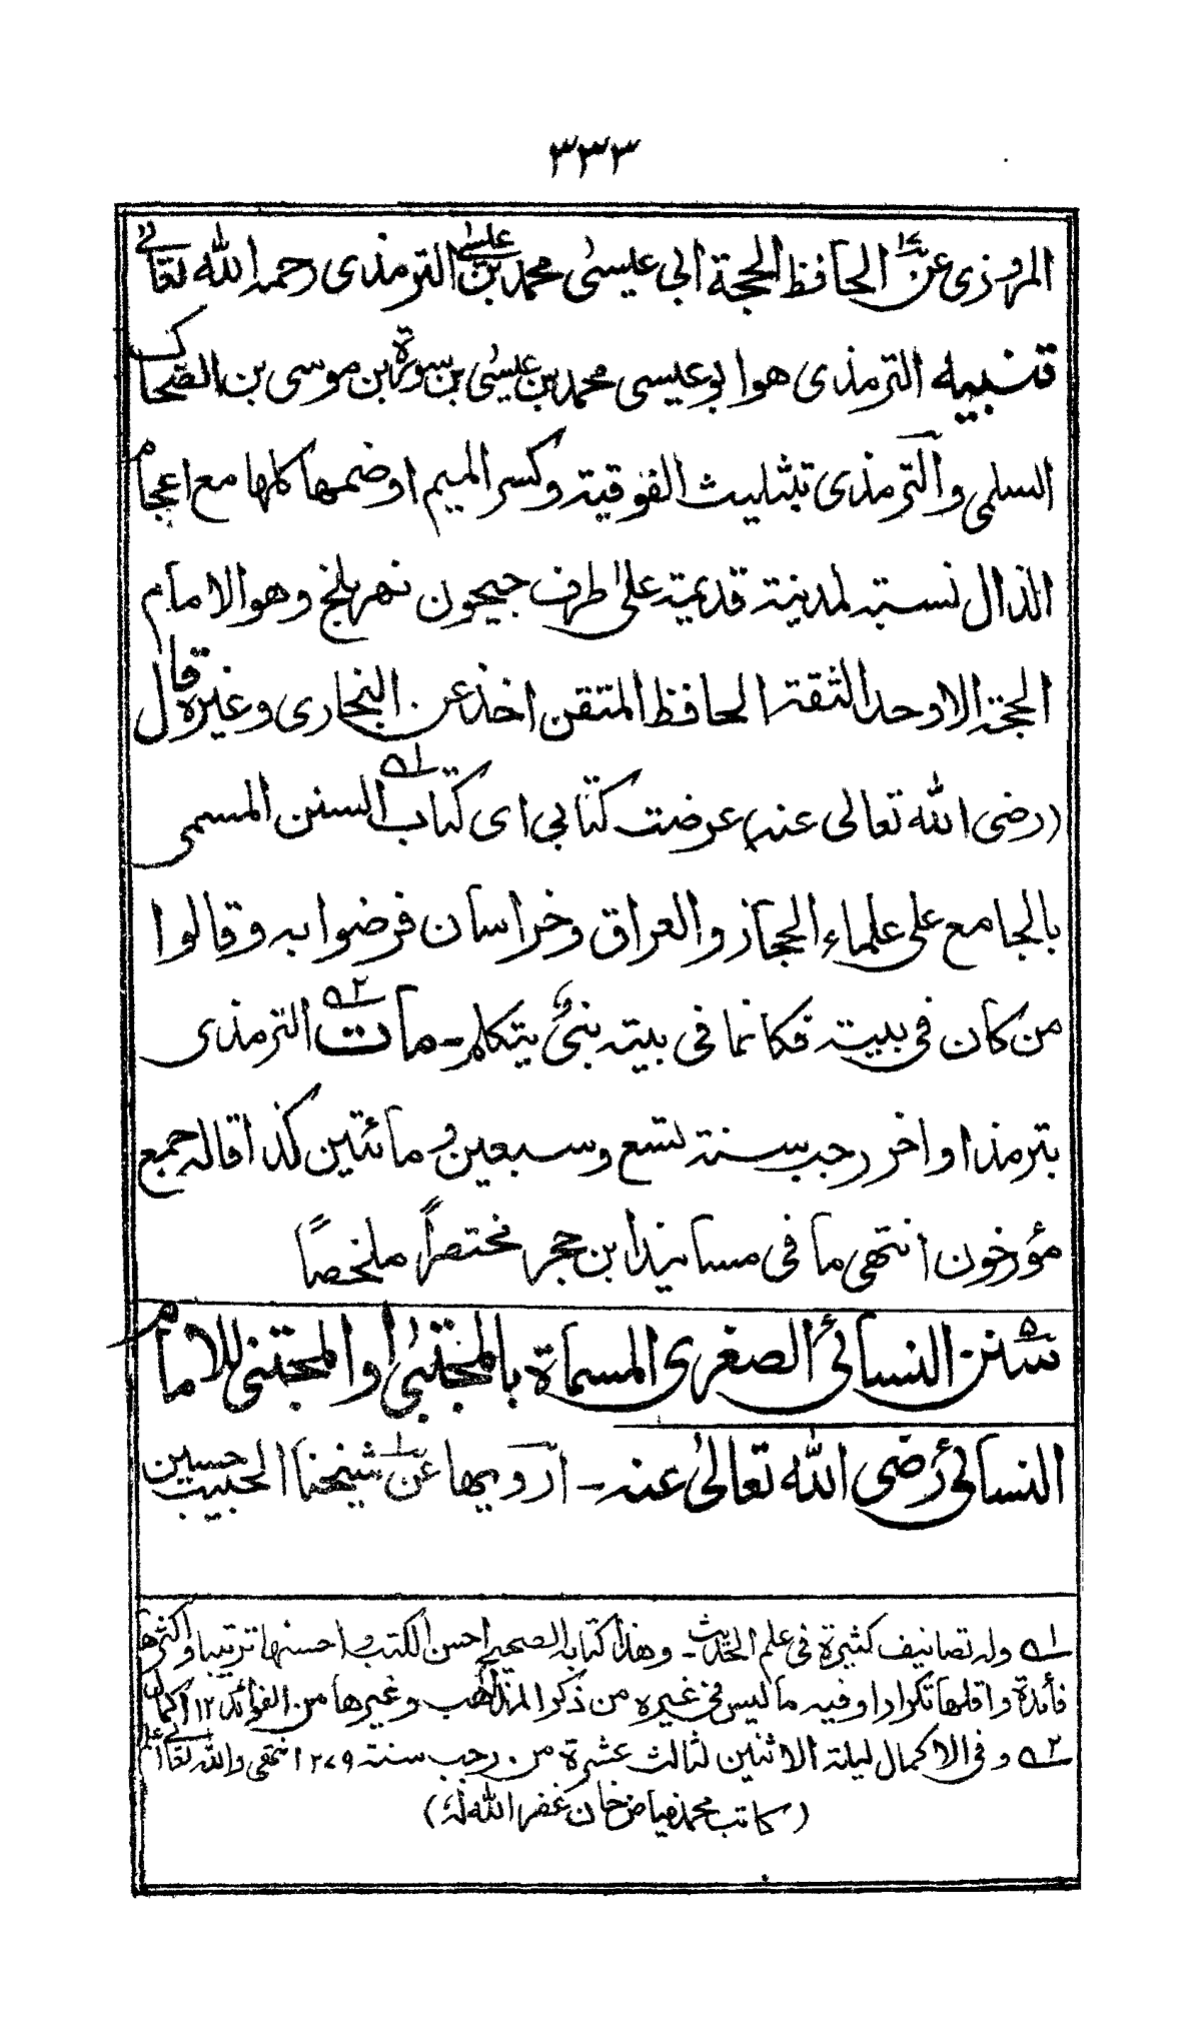 ٣٣٣
المروزی عن الحافظ الحجة ابی عیسیٰ محمد بن عیسیٰ الترمذی رحمہ اللہ تعالیٰ
تنبیہ الترمذی ھوا بو عیسی محمد بن عیسیٰ بن سورة ابن موسی بن الضحاک
السلمی والترمذی بتثلیث الفوقیۃ وکسر المیم اوضمھا کلھا مع اعجام
الذال نسبۃ لمدینۃ قدیمۃ علیٰ طرف جیحون نھر بلخ وھو الامام
الحجۃ الاوحد الثقۃ الحافظ المتقن اخذ عن البخاری وغیرہ قال
(رضی اللہ تعالی عنہ) عرضت کتابی ای کتاب ١ھ السنن المسمی
بالجامع علی علماء الحجاز والعراق وخراسان فرضوا بہ وقالوا
من کان فی بیتہ فکانما فی بیتہ نبیٌ یتکلم۔ مات ٢ھ الترمذی
بترمذ اواخر رجب سنۃ تسع وسبعین ومائتین کذا قالہ جمع
مؤرخون انتھی ما فی مسانید ابن حجر مختصراً ملخصاً
سنن النسائی الصغری المسماة بالمجتبیٰ اوالمجتنی للامام
النسائی رضی اللہ تعالیٰ عنہ۔ ارویھا عن شیخنا الحبیب حسین
١ھ ولہ تصانیف کثیرة فی علم الحدیث۔ وھذا کتابہ الصحیح احسن الکتب واحسنھا ترتیبا واکثرھا
فائدة واقلھا تکرارا وفیہ مالیس فی غیرہ من ذکر المذاھب وغیرھا من الفوائد ١٢ اکمال
٢ھ وفی الاکمال لیلۃ الاثنین لثالث عشرة من رجب سنۃ ٢٧٩ انتھی واللہ تعالیٰ اعلم
(کاتب محمد فیاض خان غفر اللہ لہٗ)